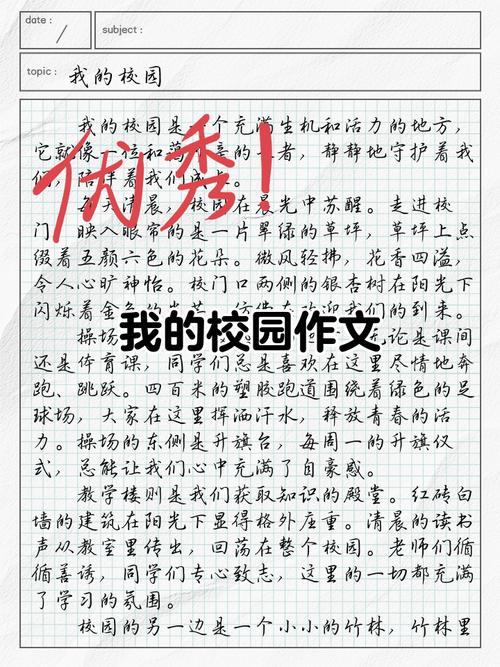 date :
subject :
topic : 我的校园
我的校园是 个充满生机和活力的地方，
它就像一位和蔼 亲的 者，静静地守护着我
们，陪伴着我们成长。
每天清晨，校园在晨光中苏醒。走进校
门，映入眼帘的是一片翠绿的草坪，草坪上点
缀着五颜六色的花朵。微风轻拂，花香四溢，
令人心旷神怡。校门口两侧的银杏树在阳光下
闪烁着金色的光芒，仿佛在欢迎我们的到来。
操场 无论是课间
还是体育课，同学们总是喜欢在这里尽情地奔
跑、跳跃。四百米的塑胶跑道围绕着绿色的足
球场，大家在这里挥洒汗水，释放青春的活
力。操场的东侧是升旗台，每周一的升旗仪
式，总能让我们心中充满了自豪感。
教学楼则是我们获取知识的殿堂。红砖白
墙的建筑在阳光下显得格外庄重。清晨的读书
声从教室里传出，回荡在整个校园。老师们循
循善诱，同学们专心致志，这里的一切都充满
了学习的氛围。
校园的另一边是一个小小的竹林，竹林里
优秀！
我的校园作文